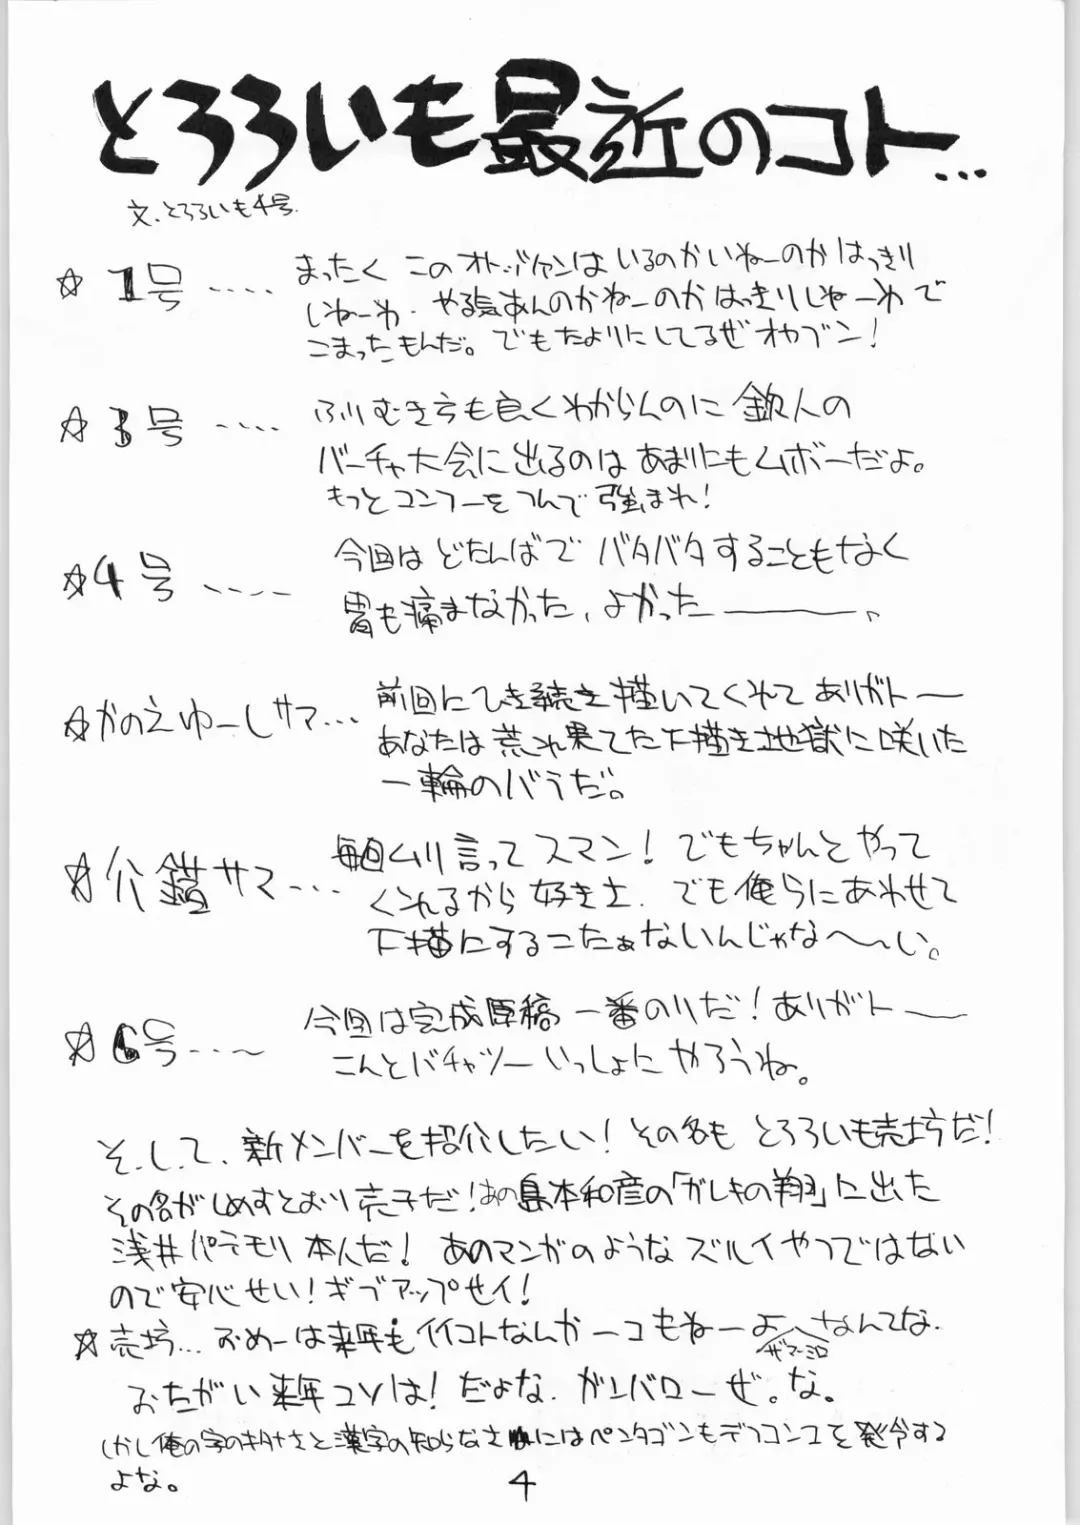 とろろいも最近のコト...
文、とろろいも4号.
☆1号....
まったく このオトッツァンは いるのかいねーのかはっきり
しねーわ. やる気あんのかねーのかはっきりしねーわで
こまったもんだ。でもたよりにしてるぜオヤブン!
☆3号....
ふりむき方も良くわからんのに鉄人の
バーチャ大会に出るのは あまりにもムボーだよ。
もっとコンフーをつんで強まれ!
☆4号....
今回は どたんばで バタバタすることもなく
胃も痛まなかった、よかった――、
☆かのえゆーしサマ...
前回にひき続き描いてくれてありガトー
あなたは荒れ果てた下描き地獄に咲いた
一輪のバラだ。
☆介錯サマ...
毎回ムリ言ってスマン! でもちゃんとやって
くれるから好きさ. でも俺らにあわせて
下描にするこたぁないんじゃな〜〜い。
☆6号...〜
今回は完成原稿一番のりだ!ありガトー
こんどバチャツーいっしょにやろうね。
そ.し.て、新メンバーを紹介したい! その名も とろろいも売坊だ!
その名がしめすとおり売子だ!あの島本和彦の「ガレキの翔」に出た
浅井パラモリ本人だ! あのマンガのようなズルイやつではない
ので安心せい!ギブアップせイ!
☆売坊... おめーは来年もイイコトなんか一コもねーよ なんてな.
ザマーミロ
おたがい来年コソは! だよな. ガンバローぜ。な。
しかし俺の字のキタナさと漢字の知らなさにはペンタゴンもデフコン1を発令する
よな。
4